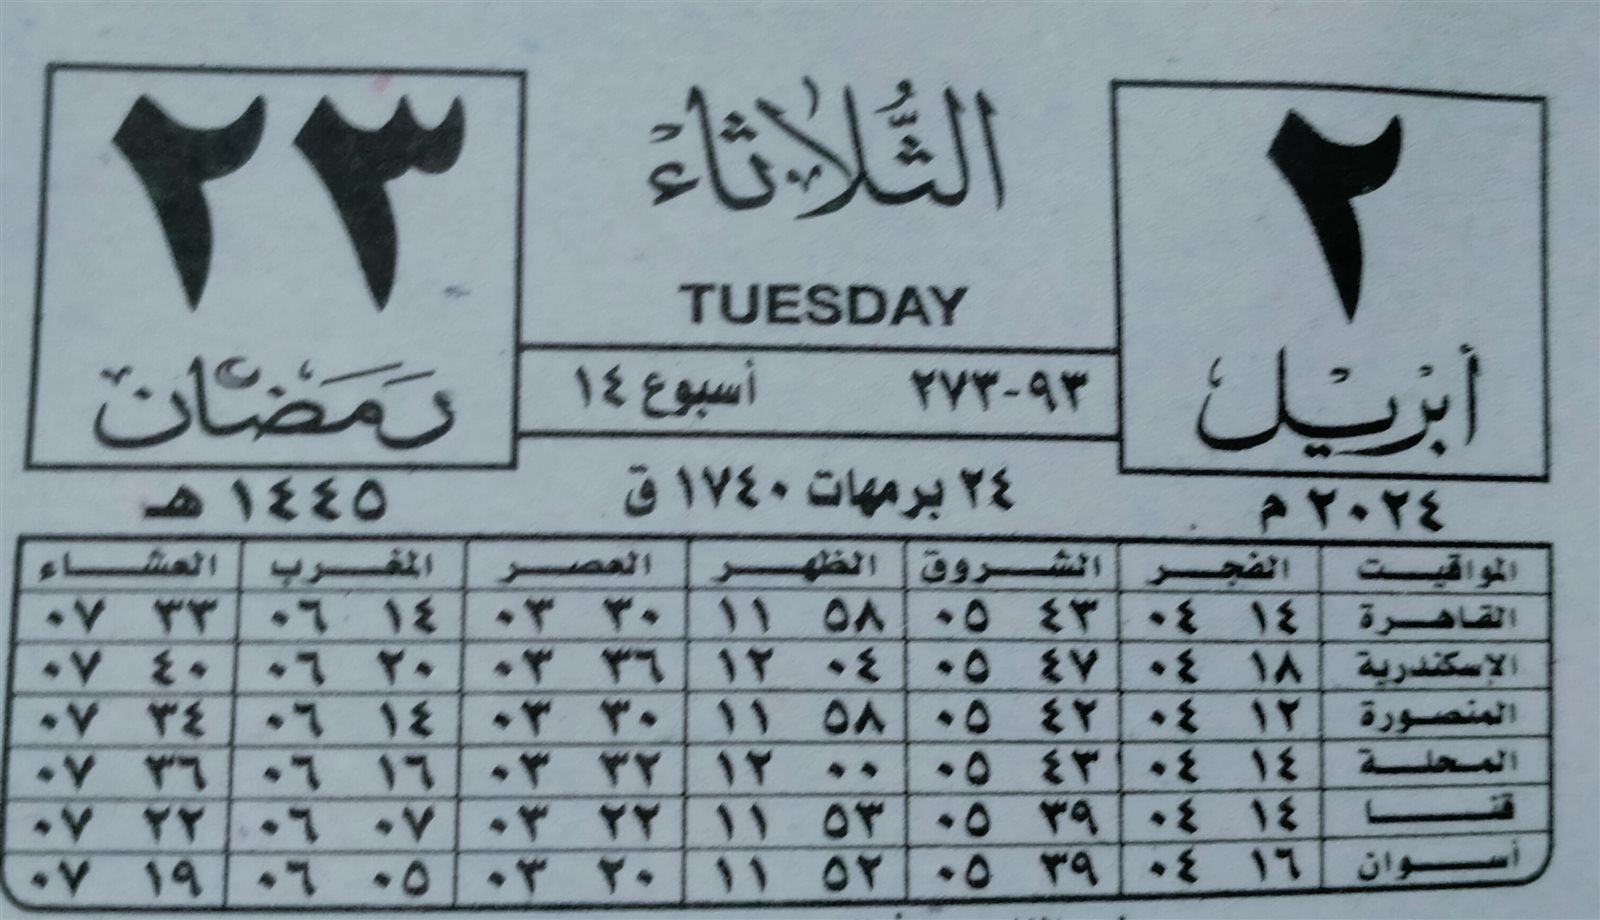 ٢ الثُّلَاثَاءُ ٢٣
TUESDAY
أَبْرِيْل ٩٣-٢٧٣ أسبوع ١٤ رَمَضَان
٢٠٢٤ م ٢٤ برمهات ١٧٤٠ ق ١٤٤٥ هـ
المواقيت الفجر الشروق الظهر العصر المغرب العشاء
القاهرة ١٤ ٠٤ ٤٣ ٠٥ ٥٨ ١١ ٣٠ ٠٣ ١٤ ٠٦ ٣٣ ٠٧
الإسكندرية ١٨ ٠٤ ٤٧ ٠٥ ٠٤ ١٢ ٣٦ ٠٣ ٢٠ ٠٦ ٤٠ ٠٧
المنصورة ١٢ ٠٤ ٤٢ ٠٥ ٥٨ ١١ ٣٠ ٠٣ ١٤ ٠٦ ٣٤ ٠٧
المحلة ١٤ ٠٤ ٤٣ ٠٥ ٠٠ ١٢ ٣٢ ٠٣ ١٦ ٠٦ ٣٦ ٠٧
قنا ١٤ ٠٤ ٣٩ ٠٥ ٥٣ ١١ ٢٢ ٠٣ ٠٧ ٠٦ ٢٢ ٠٧
أسوان ١٦ ٠٤ ٣٩ ٠٥ ٥٢ ١١ ٢٠ ٠٣ ٠٥ ٠٦ ١٩ ٠٧